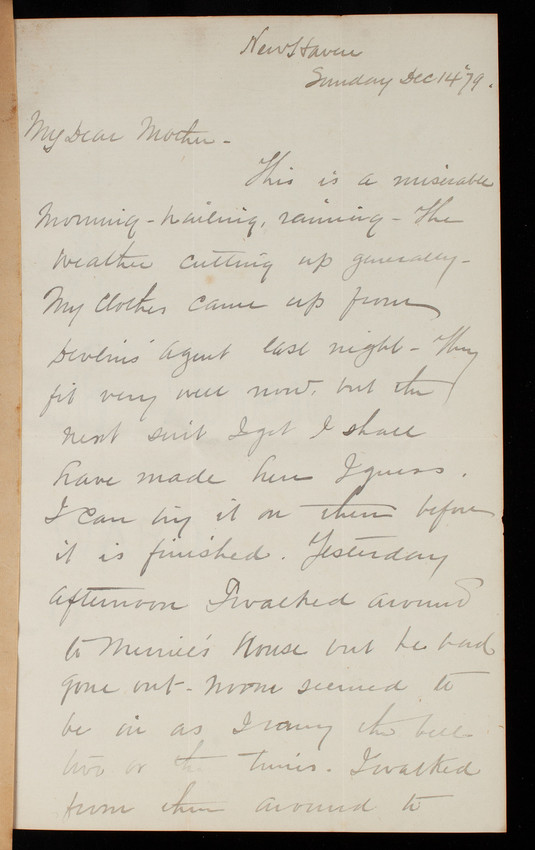 New Haven
Sunday Dec 14th 79.
My Dear Mother -
This is a miserable
morning - hailing, raining - the
weather cutting up generally -
My clothes came up from
Devlins' agent last night - They
fit very well now, but the
next suit I get I shall
have made here I guess.
I can try it on then before
it is finished. Yesterday
afternoon I walked around
to House but he had
gone out - No one seemed to
be in as I rang the bell
two or three times. I walked
from there around to